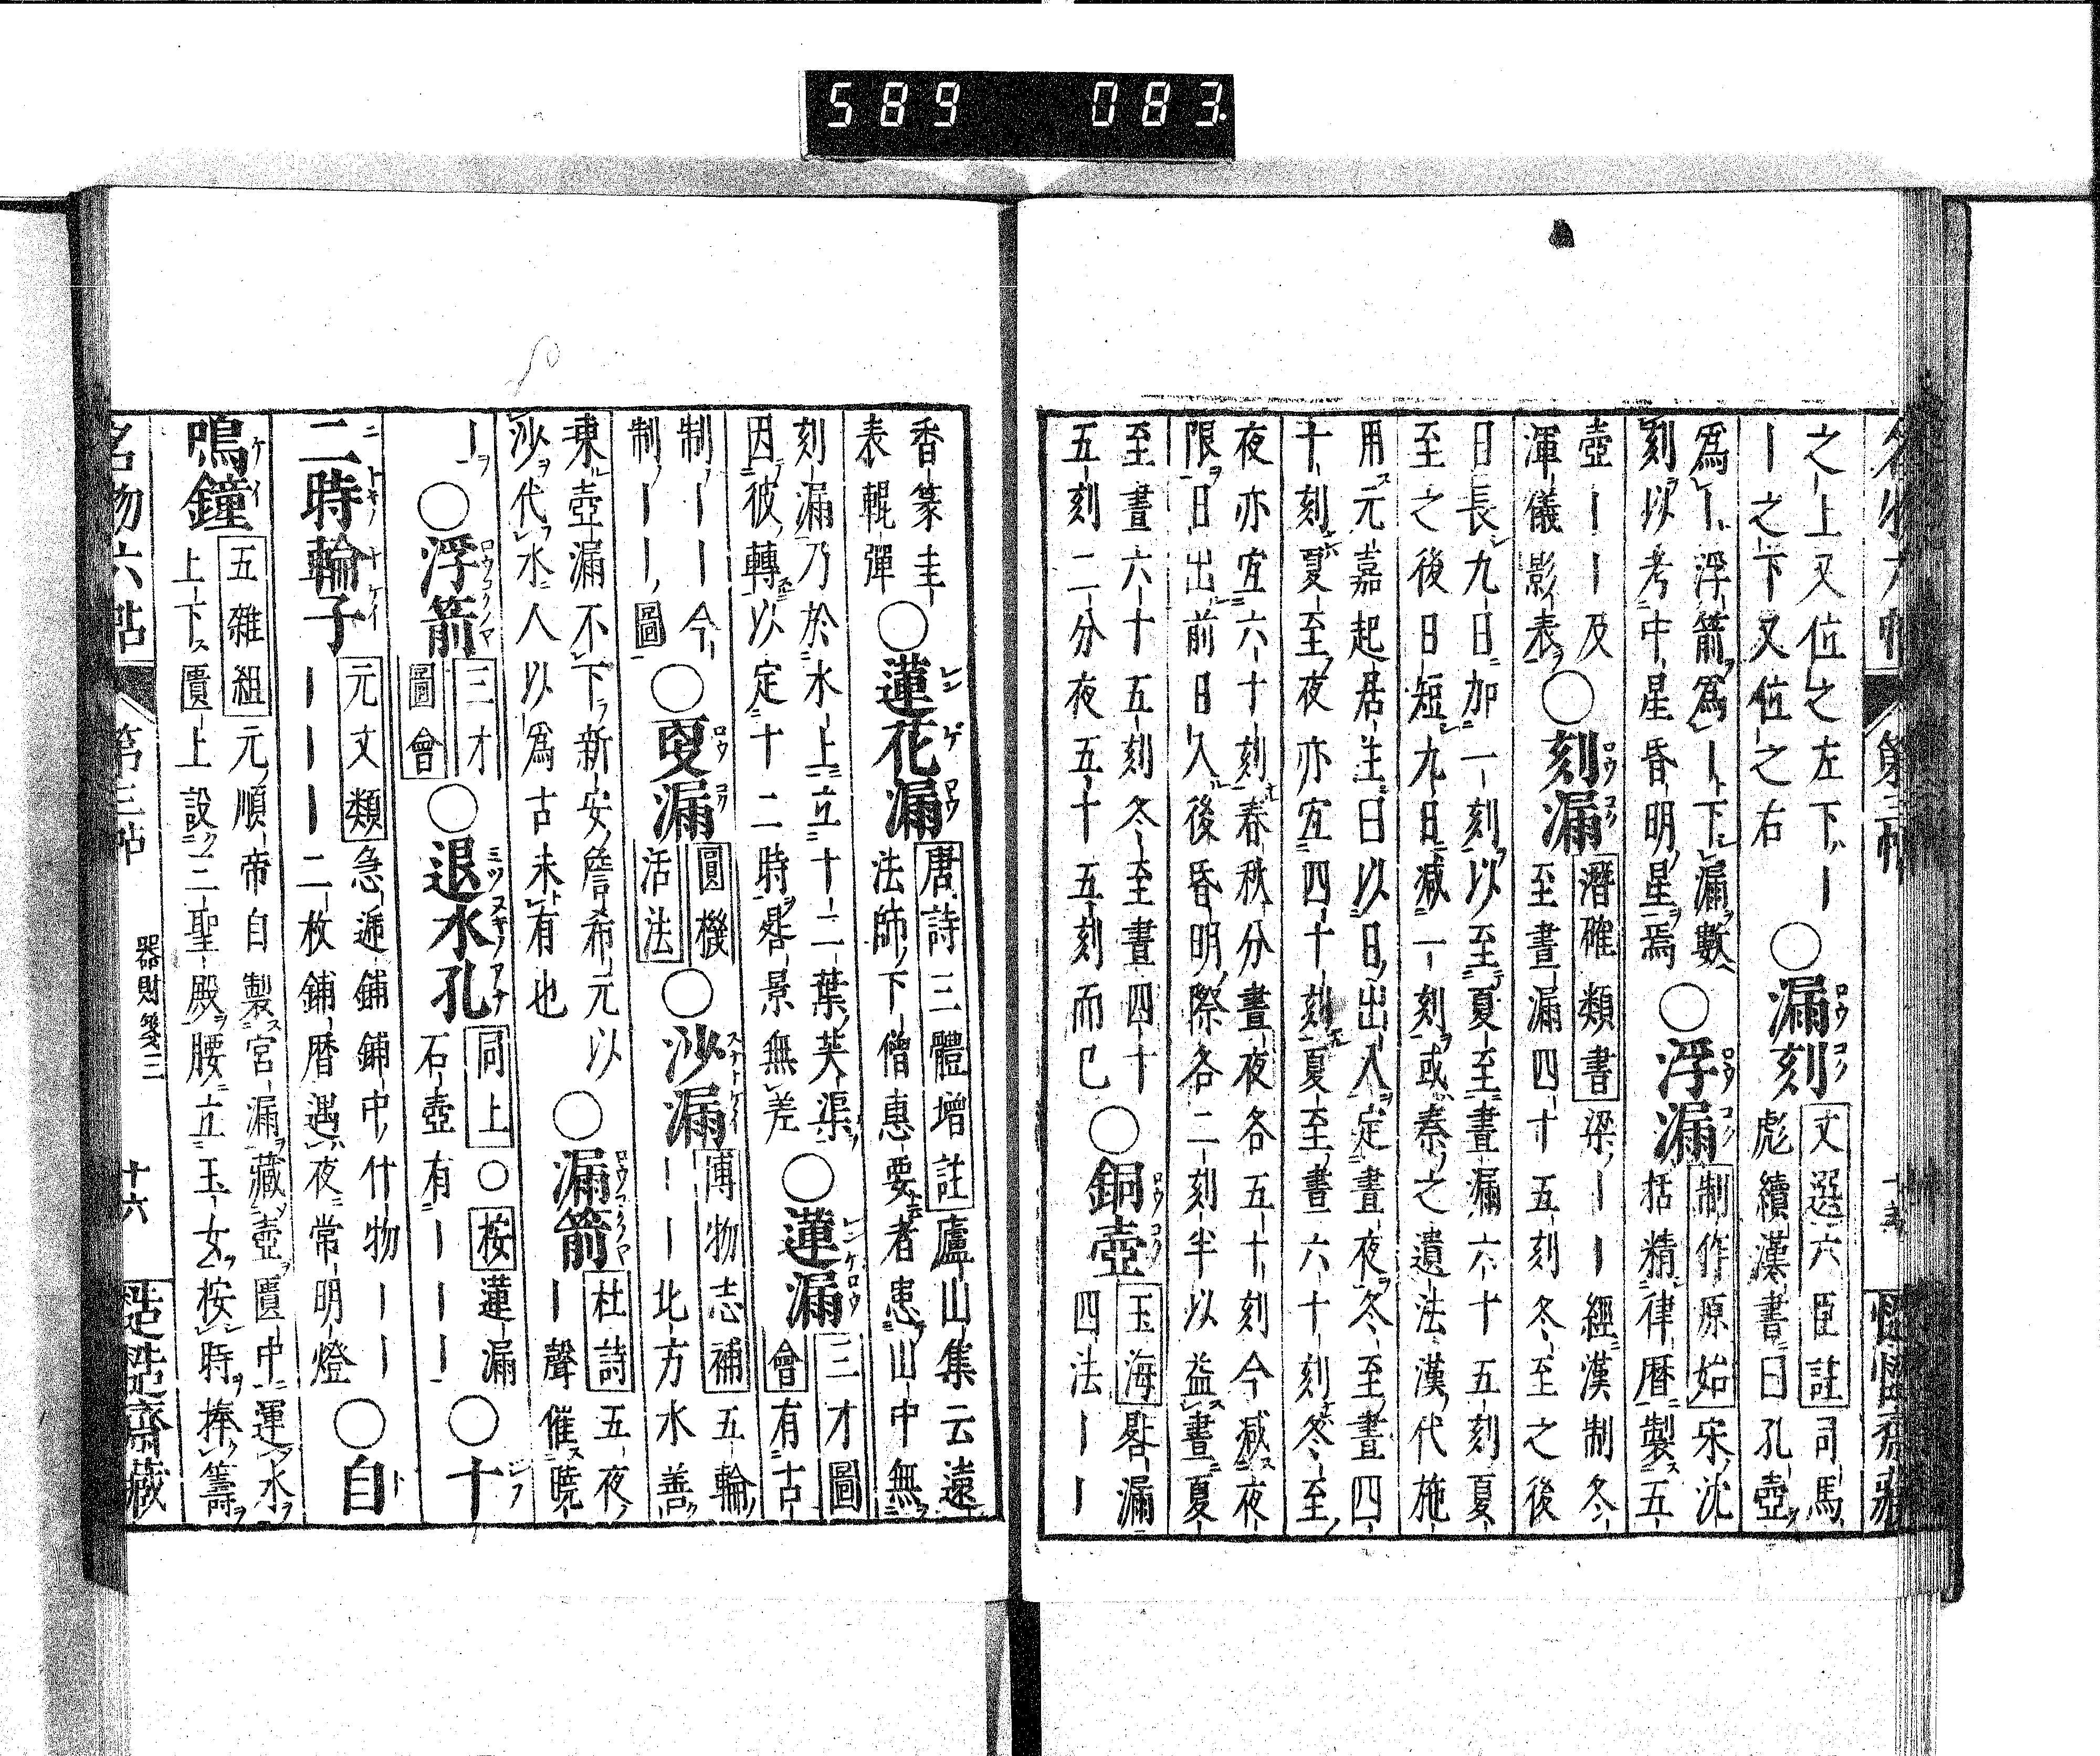 589 083
之上又位之左下｜
｜之下又位之右
○漏刻
文選六臣註司馬
彪續漢書曰孔壺
爲｜浮箭爲｜下漏數
刻以考中星昏明星焉
○浮漏
制作原始宋沈
括精律暦製五
壺｜｜及
渾儀影表
○刻漏
潛確類書梁｜｜經漢制冬
至晝漏四十五刻冬至之後
日長九日加一刻以至夏至晝漏六十五刻夏
至之後日短九日减一刻或秦之遺法漢代施
用元嘉起居注曰以日出入定晝夜冬至晝四
十刻夏至夜亦宜四十刻夏至晝六十刻冬至
夜亦宜六十刻春秋分晝夜各五十刻今减夜
限日出前日入後昏明際各二刻半以益晝夏
至晝六十五刻冬至晝四十
五刻二分夜五十五刻而已
○銅壺
玉海晷漏
四法｜｜
香篆圭
表輥彈
○蓮花漏
唐詩三體增註廬山集云遠
法師下僧惠要者患山中無
刻漏乃於水上立十二葉芙渠
因彼轉以定十二時晷景無差
○蓮漏
三才圖
會有古
制｜｜今
制｜｜圖
○更漏
圓機
活法
○沙漏
博物志補五輪
｜｜北方水善
東壺漏不下新安詹希元以
沙代水人以爲古未有也
○漏箭
杜詩五夜
｜聲催曉
｜
○浮箭
三才
圖會
○退水孔
同上○按蓮漏
石壺有｜｜｜
○十
二時輪子
元文類急遞鋪鋪中什物｜｜
｜｜｜二枚鋪暦遇夜常明燈
○自
鳴鐘
五雜組元順帝自製宮漏藏壺匱中運水
上下匱上設三聖殿腰立玉女按時捧籌
名物六帖 第三帖 器財箋三 十六